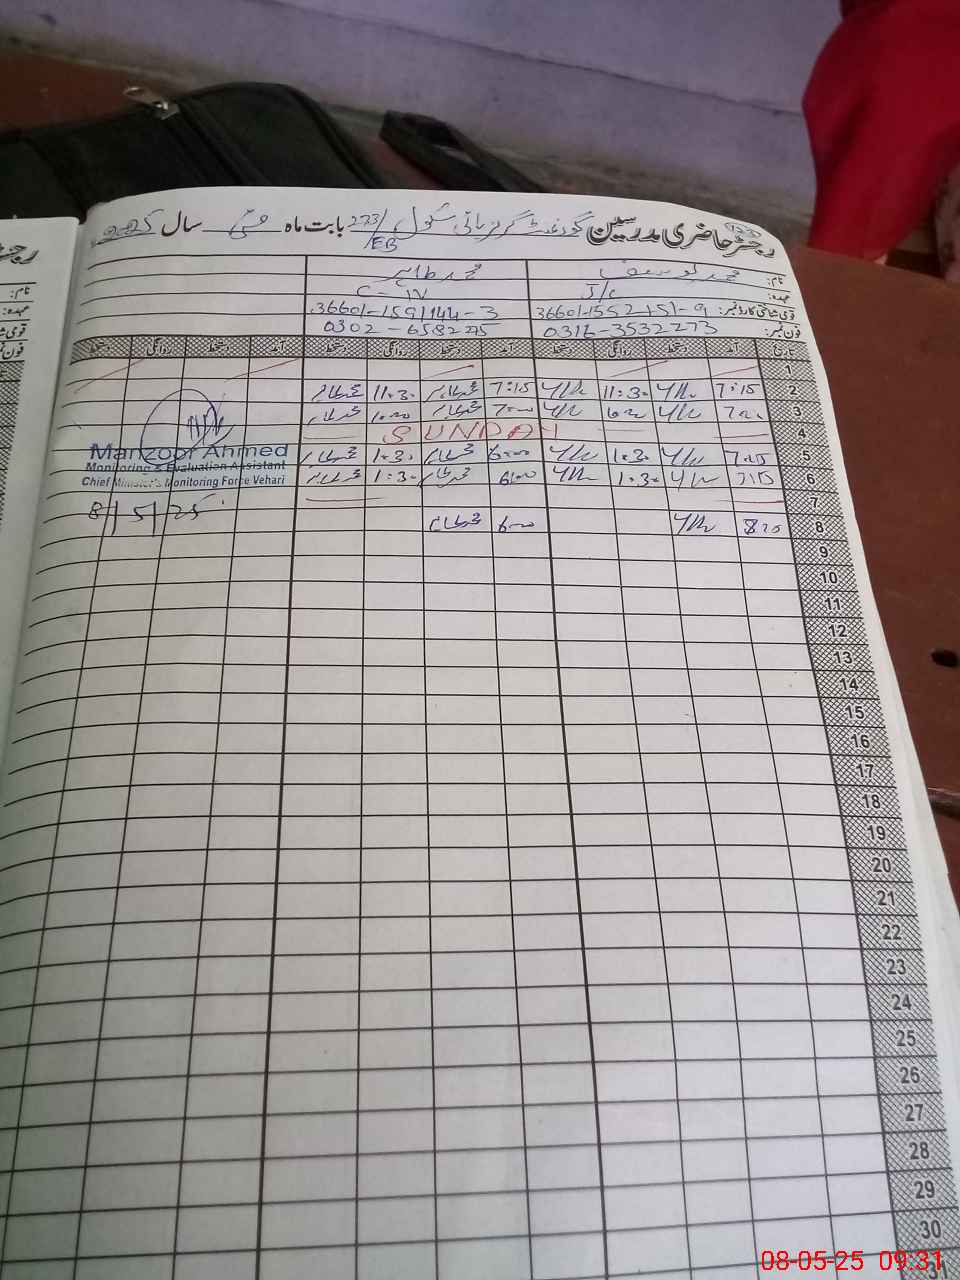 رجسٹر حاضری مدرسین گورنمنٹ گرلز ہائی سکول 273/EB بابت ماہ مئی سال 2025
نام: محمد توصیف محمد طاہر
عہدہ: J/c C-IV
قومی شناختی کارڈ نمبر: 36601-1552151-9 36601-1591144-3
فون نمبر: 0316-3532273 0302-6582275
تاریخ آمد دستخط روانگی دستخط آمد دستخط روانگی دستخط آمد دستخط روانگی دستخط
1
2 7:15 11:30 7:15 محمد طاہر 11:30 محمد طاہر
3 7:00 10:00 7:00 محمد طاہر 10:00 محمد طاہر
4 SUNDAY
5 7:15 1:30 6:00 محمد طاہر 1:30 محمد طاہر
6 7:15 1:30 6:00 محمد طاہر 1:30 محمد طاہر
7
8 6:00 محمد طاہر
Manzoor Ahmed
Monitoring & Evaluation Assistant
Chief Minister's Monitoring Force Vehari
8/5/25
9
10
11
12
13
14
15
16
17
18
19
20
21
22
23
24
25
26
27
28
29
30
31
نام:
عہدہ:
08-05-25 09:31